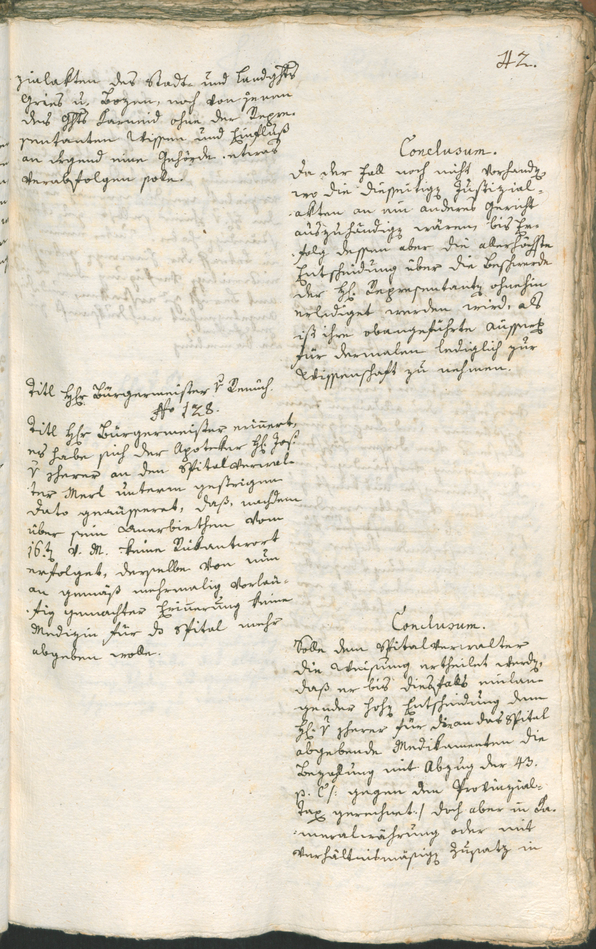 42.
zialakten des Stadt- und Landghts
Gries u. Bozen, noch von jenen
des Ghts Karneid ohne der Repre-
sentanten Wissen und Einfluß
an irgend eine Behörde etwas
verabfolgen solle.
Conclusum.
Da der Fall noch nicht vorhanden,
wo die diesseitigen Justizial-
akten an ein anderes Gericht
auszuhändigen wären, bis Er-
folg dessen aber die allerhöchste
Entscheidung über die Beschwerde
der H. Representanten ohnehin
erlediget werden wird, als
ist ihre obangeführte
für dermalen lediglich zur
Wissenschaft zu nehmen.
Titl Hr Bürgermeister v
No 128.
Titl Hr Bürgermeister erinert,
es habe sich der Apoteker H. Jos.
v Pherer an den Spitalverwal-
ter Merl unterm gestrigen
Dato geäusseret, daß, nachdem
über sein Anerbiethen vom
16ten v. M. keine Rükantwort
erfolget, derselbe von nun
an gemäß mehrmalig vorläu-
fig gemachter Erinerung keine
Medizin für ds Spital mehr
abgeben wolle.
Conclusum.
Solle dem Spitalverwalter
die Weisung ertheilet werden,
daß er bis diesfalls einlan-
gender hohen Entscheidung dem
H. v Pherer für die an das Spital
abgebende Medikamenten die
Bezahlung mit Abzug der 43.
p. C/: gegen dem Provinzial-
tax gerechnet :/ doch aber in Ka-
meralwährung oder mit
verhältnismäsigen Zusatz in